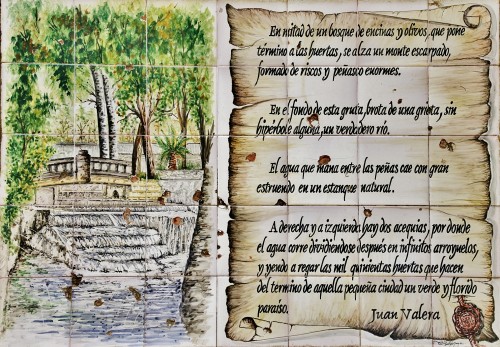 En mitad de un bosque de encinas y olivos, que pone
término a las huertas, se alza un monte escarpado,
formado de riscos y peñasco enormes.
En el fondo de esta gruta, brota de una grieta, sin
hipérbole alguna, un verdadero río.
El agua que mana entre las peñas cae con gran
estruendo en un estanque natural.
A derecha y a izquierda hay dos acequias, por donde
el agua corre dividiendose después en infinitos arroyuelos,
y yendo a regar las mil quinientas huertas que hacen
del termino de aquella pequeña ciudad un verde y florido
paraíso.
Juan Valera